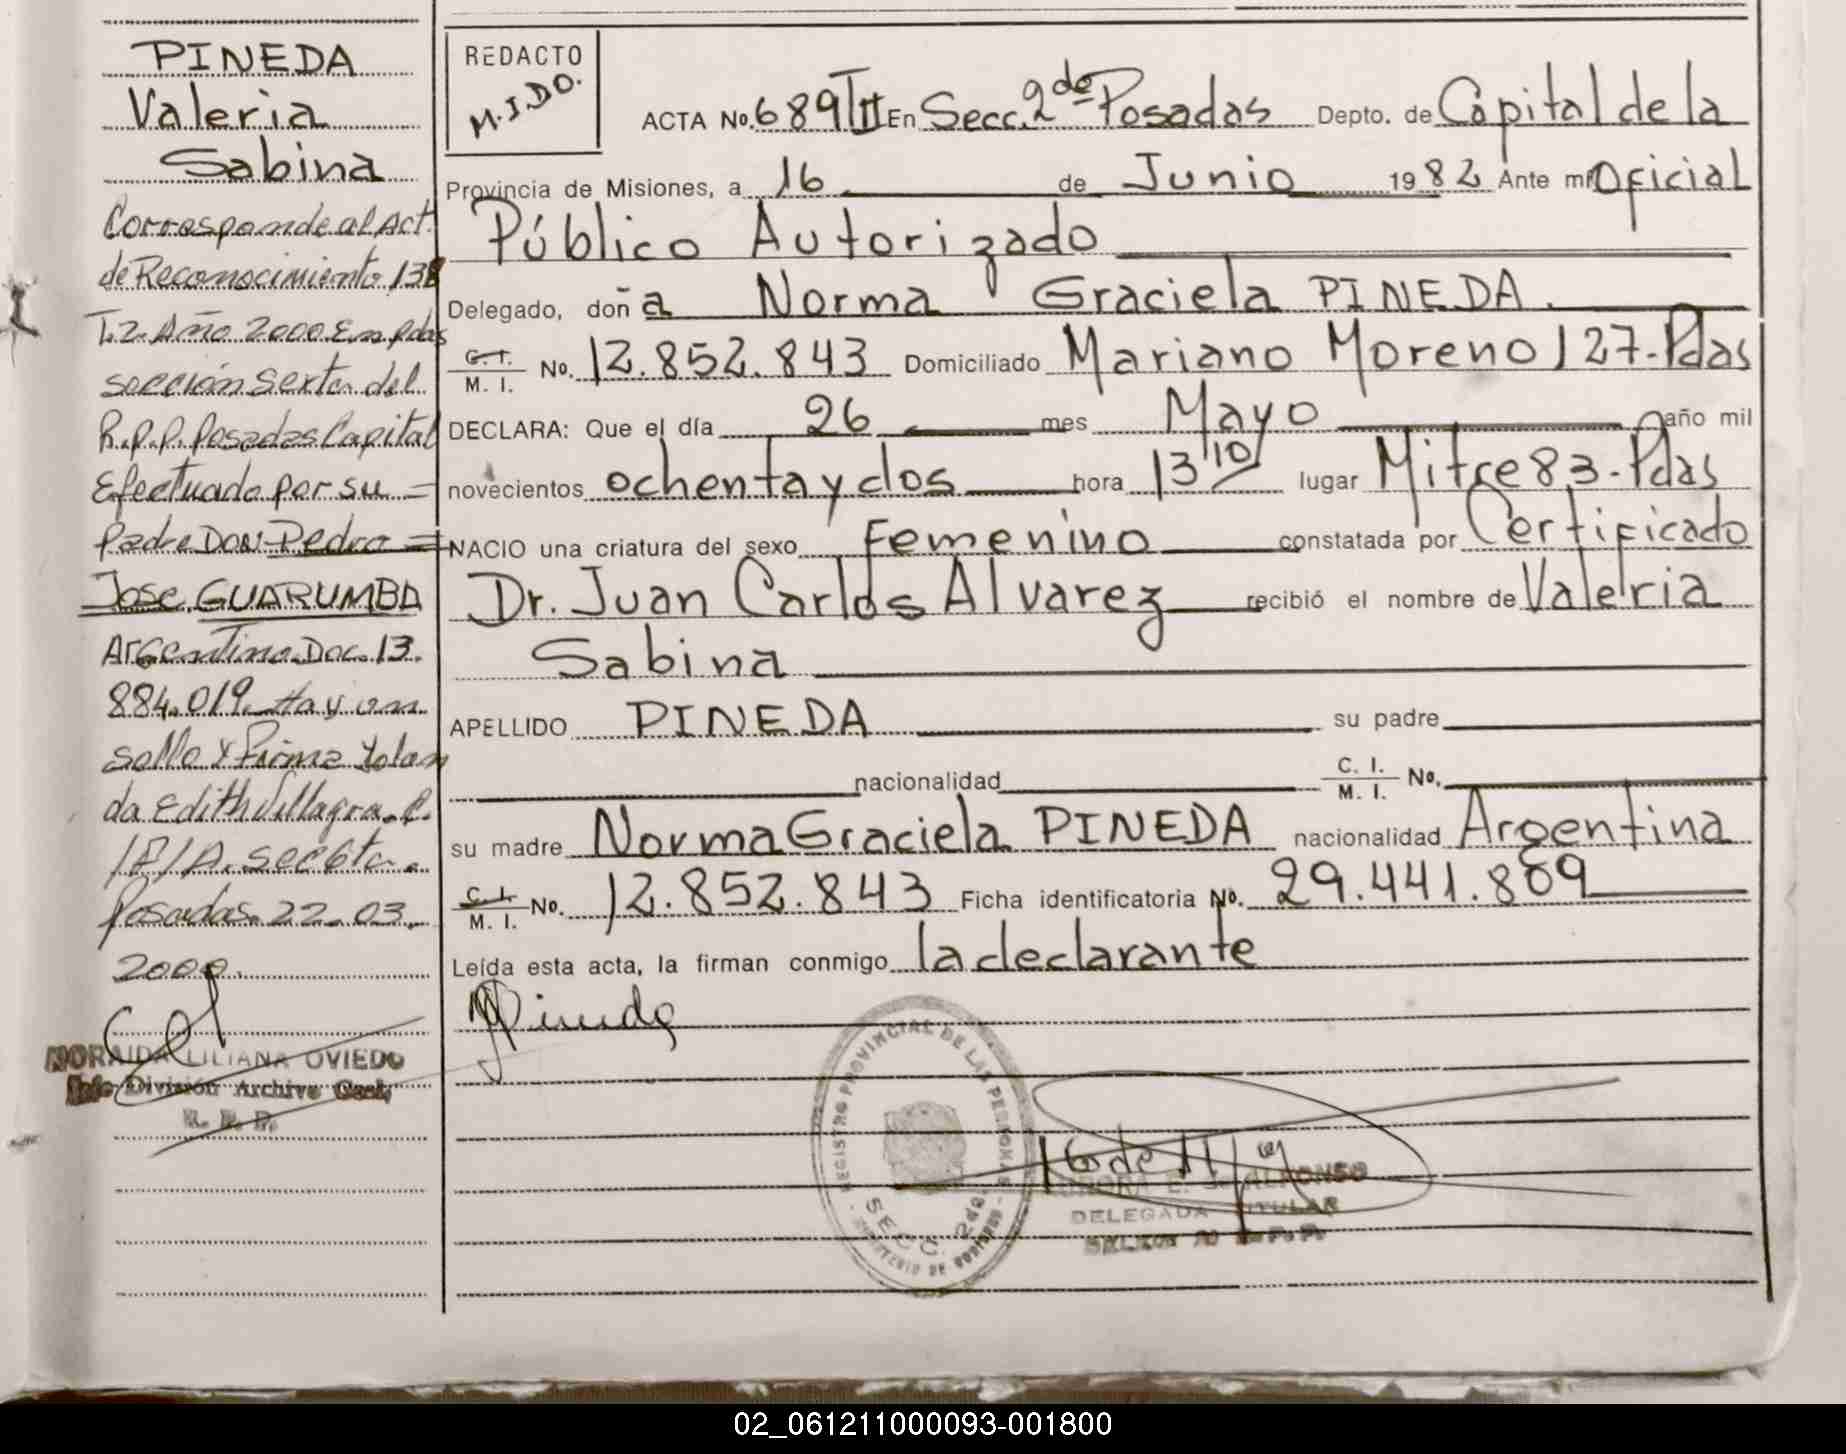 PINEDA
Valeria
Sabina
Corresponde al Act.
de Reconocimiento 138
T.2. Año 2000 En Pdas
sección Sexta del
R.P.P. Posadas Capital
Efectuado por su =
Padre DON Pedro =
Jose GUARUMBA
Argentino Doc. 13.
884.019. Hay un
sello y firma Yolan
da Edith Villagra.
Secc 6ta.
Posadas 22.03.
2000.
NORAIDA LILIANA OVIEDO
División Archivo Gral.
R. P. P.
REDACTO
M.I.DO.
ACTA No. 689 TII En Secc. 2da de Posadas Depto. de Capital de la
Provincia de Misiones, a 16 de Junio 1982 Ante mi Oficial
Público Autorizado
Delegado, doña Norma Graciela PINEDA.
C. I. / M. I. No. 12.852.843 Domiciliado Mariano Moreno 127-Pdas
DECLARA: Que el día 26 mes Mayo año mil
novecientos ochenta y dos hora 13 10 lugar Mitre 83-Pdas
NACIO una criatura del sexo Femenino constatada por Certificado
Dr. Juan Carlos Alvarez recibió el nombre de Valeria
Sabina
APELLIDO PINEDA su padre
nacionalidad C. I. / M. I. No.
su madre Norma Graciela PINEDA nacionalidad Argentina
C. I. / M. I. No. 12.852.843 Ficha identificatoria No. 29.441.809
Leída esta acta, la firman conmigo la declarante
Pineda
REGISTRO PROVINCIAL DE LAS PERSONAS
SECC. 2da.
MINISTERIO DE GOBIERNO
ALFONSO
DELEGADA TITULAR
02_061211000093-001800